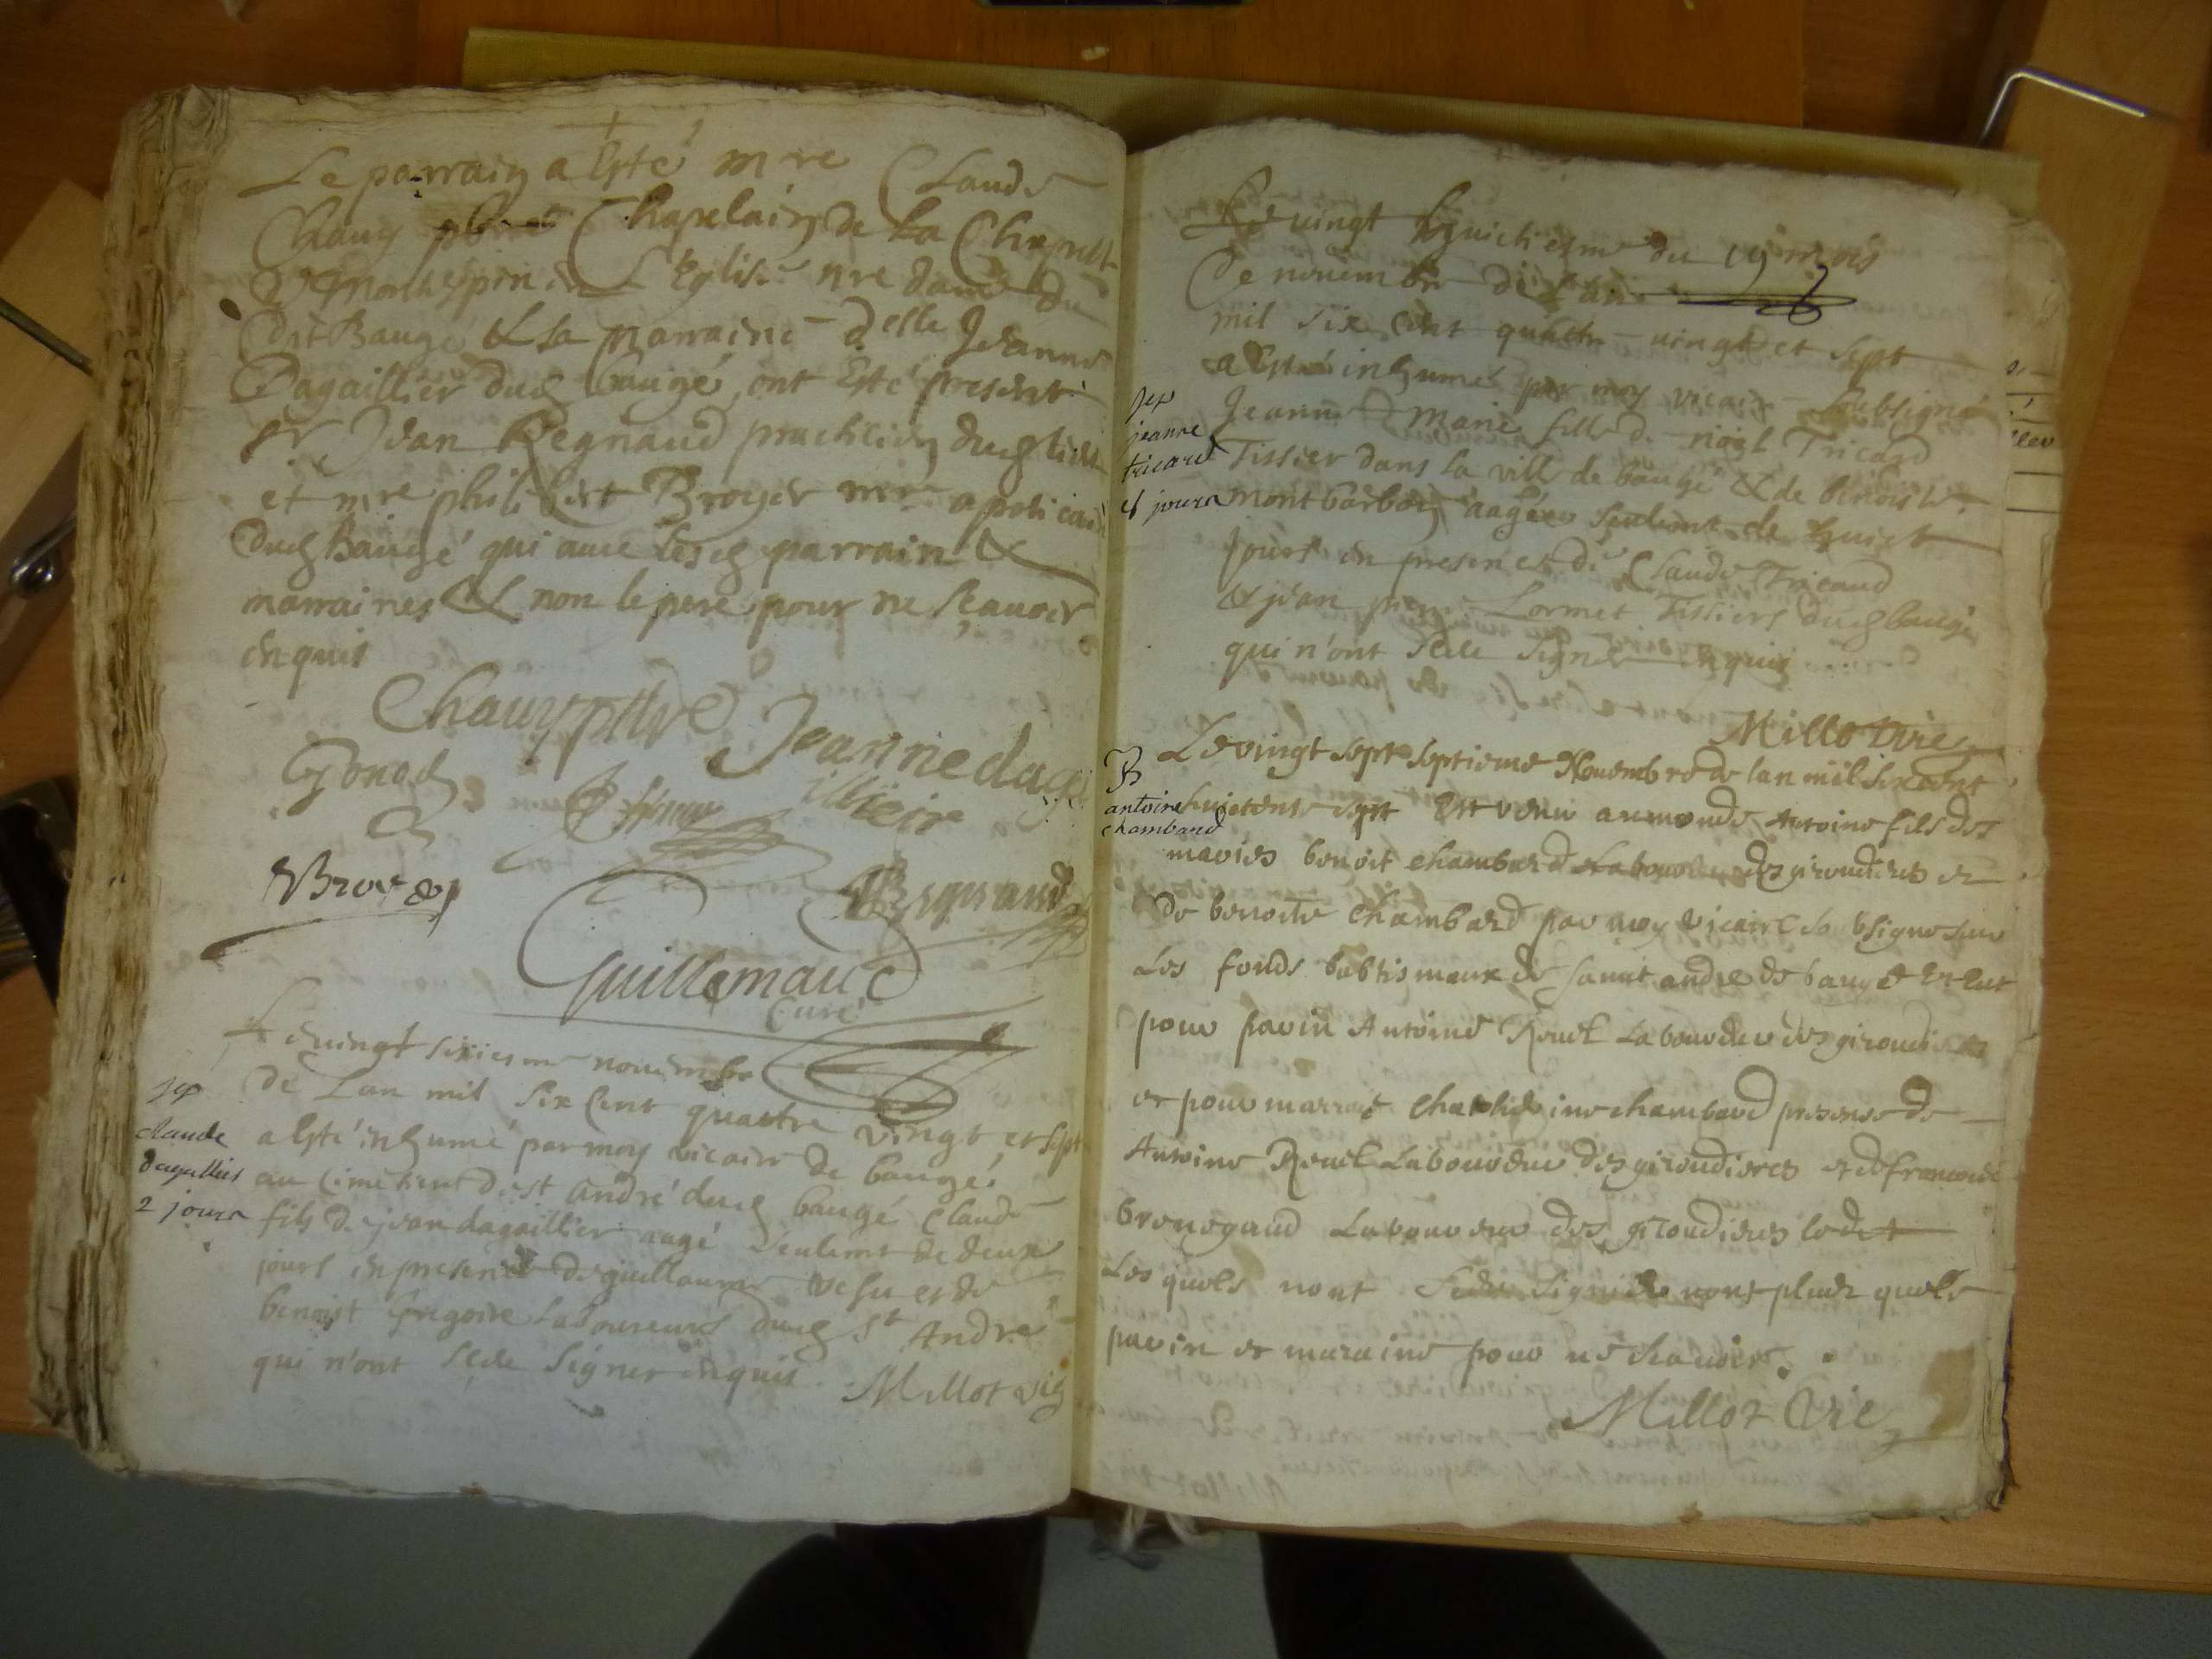 Le parrain a Esté mre Claude
Chauy pbre Chapelain de la Chapelle
De Montespin en L'Eglise nre dame du
dit Baugé & la marraine delle Jeanne
Dagaillier dud baugé, ont Esté present
Sr Jean Regnaud practicien dud lieu
et mre philibert Broyer mre apoticaire
dud Baugé qui avec lesd parrain &
marraines & non le pere pour ne scauoir
enquis
Chauy pbre
Jeanne daga
illieir
Gonod
Broyer
Guillemaud
Curé
Le vingt sixiesme nouembre
De Lan mil six Cent quattre vingt et sept
a Esté inhumé par moy vicaire de baugé
au Cimetiere de st André dud baugé Claude
fils de jean dagaillier aagé seulemt de deux
jours en presence de guillaume vesu et de
benoist Gregoire laboureurs dud st André
qui n'ont sceu signer enquis
Millot vic
sep
claude
dagallier
2 jours
Le vingt huictiesme du mois
De nouembre de l'an
mil six Cent quattre vingt et sept
a Esté inhumé par moy vicaire soubsigné
Jeanne Marie fille de noel Tricaud
Tissier dans la ville de baugé & de benoiste
montbarbon aagée seulemt de huict
jours en presence de Claude Tricaud
& jean pierre Lormet Tissiers dud baugé
qui n'ont sceu signer enquis
Millot vic
sep
jeanne
tricaud
8 jours
Le vingt sept septieme Nouembre de lan mil six cent
huictente sept Est venu au monde Antoine fils des
maries benoit chambard des giroudieres et
de benoite chambard par moy vicaire sobsigne sur
Les fonds babtismaux de sainct andre de baugé Et Eut
pour parin Antoine Revel Laboureur des giroudieres
et pour marraine chambard presence de
Antoine Revel Laboureur des giroudieres et de francois
brevogaud Laboureur des giroudieres
Les quels nont sceu signer non plus quels
parin et maraine pour ne scauoir.
Millot Vic
B
antoine
chambard